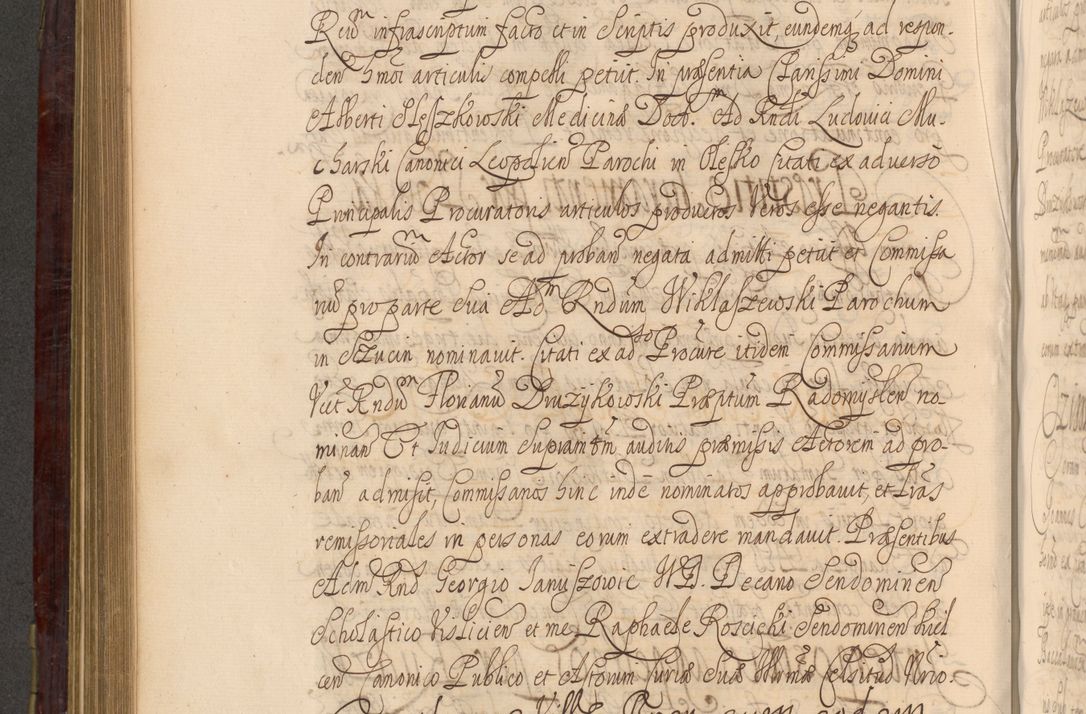 Reum infrascriptum facto et in scriptis produxit, eundemq́ ad respon-
den hmoi articulis compelli petiit. In præsentia Clarissimi Domini
Adberti Olęszkowski Medicinæ Doct. Ad Rndi Ludovici Mu-
charski Canonici Leopolien Parochi in Olesko Citati ex adverso
Principalis Procuratoris articulos productos Veros esse negantis.
In contrarium Actor se ad proban negata admitti petiit et Commissa
riu pro parte sua Adm Rndum Wiklaszewski Parochum
in Szucin nominavit. Citati ex adso Procūre itidem Commissarium
Vict Rndum Florianū Druzykowski Præptum Radomyslen no-
minan Et Iudicium Supramtm auditis præmissis Actorem ad pro-
ban admisit, Commissarios hinc inde nominatos approbavit, et Lras
remissoriales in personas eorum extradere mandavit. Præsentibus
Adm Rnd Georgio Ianuszowic WD. Decano Sendominen
Scholastico Vislicien et me Raphaele Roscicki Sendominen Kiel
cen Canonico Publico et Actorum Curiæ Suæ Celsitud